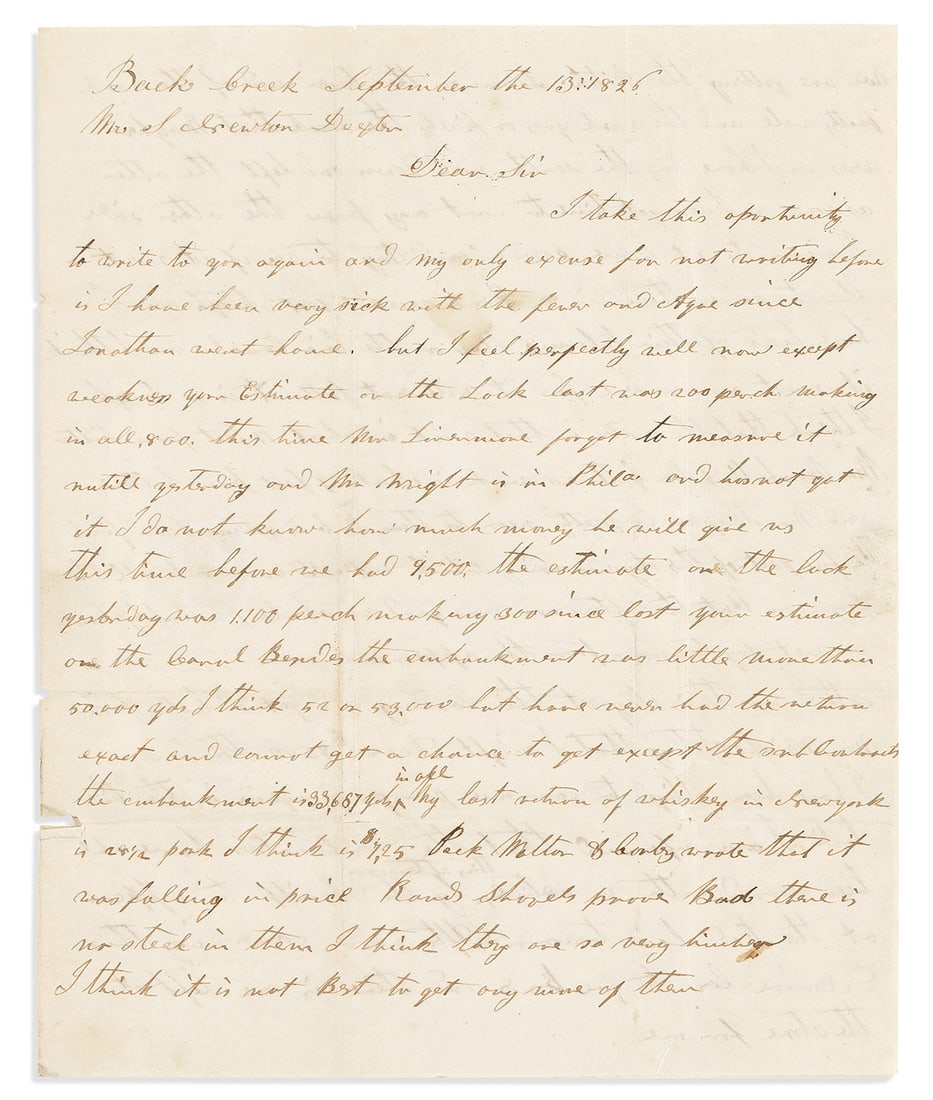 Back Creek September the 13th 1826
Mr S Newton Dexter
Dear Sir
I take this oportunity
to write to you again and my only excuse for not writing before
is I have been very sick with the fever and Ague since
Jonathan went home. but I feel perfectly well now except
weakness your Estimate on the Lock last was 200 perch making
in all, 800. this time Mr Livermore forgot to measure it
untill yesterday and Mr Wright is in Phila and has not got
it I do not know how much money he will give us
this time before we had 9,500. the estimate on the lock
yesterday was 1.100 perch making 300 since last your estimate
on the Canal Besides the embankment was little more than
50.000 yds I think 52 or 53,000 but have never had the return
exact and connot get a chance to get except the sub Contracts
the embankment is 33,687 yds in all My last return of whiskey in Newyork
is 28½ pork I think is $7,25 Peck Wolton & Corby wrote that it
was falling in price Rands Shovels prove Bad there is
no steel in them I think they are so very limber
I think it is not Best to get any more of them